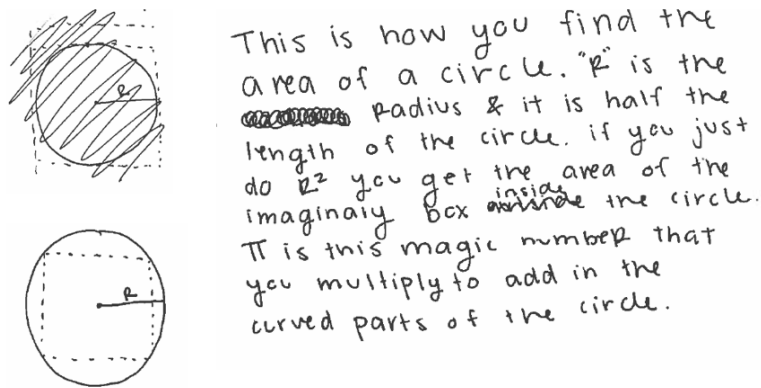 R
This is how you find the
area of a circle. "R" is the
Radius & it is half the
length of the circle. if you just
do R² you get the area of the
imaginary box inside the circle.
π is this magic number that
you multiply to add in the
curved parts of the circle.
R